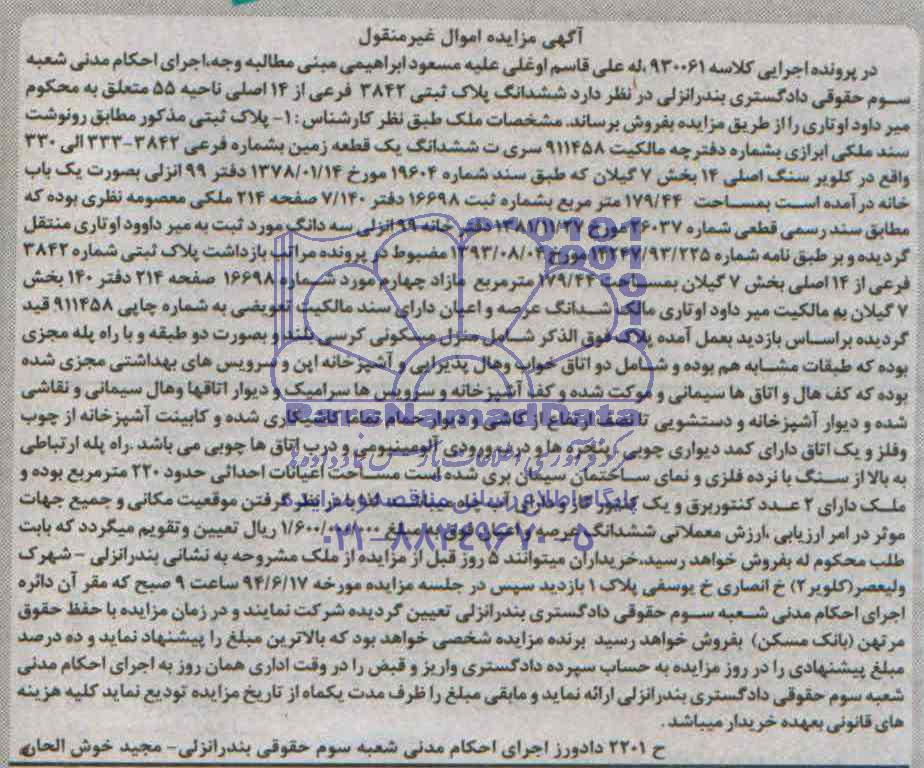 آگهی مزایده اموال غیرمنقول
در پرونده اجرایی کلاسه ۹۳۰۰۶۱ ،له علی قاسم اوغلی علیه مسعود ابراهیمی مبنی مطالبه وجه،اجرای احکام مدنی شعبه
سوم حقوقی دادگستری بندرانزلی در نظر دارد ششدانگ پلاک ثبتی ۳۸۴۲ فرعی از ۱۴ اصلی ناحیه ۵۵ متعلق به محکوم
میر داود اوتاری را از طریق مزایده بفروش برساند. مشخصات ملک طبق نظر کارشناس : ۱- پلاک ثبتی مذکور مطابق رونوشت
سند ملکی ابرازی بشماره دفترچه مالکیت ۹۱۱۴۵۸ سری ت ششدانگ یک قطعه زمین بشماره فرعی ۳۸۴۲-۳۳۳ الی ۳۳۰
واقع در کلویر سنگ اصلی ۱۴ بخش ۷ گیلان که طبق سند شماره ۱۹۶۰۴ مورخ ۱۳۷۸/۰۱/۱۴ دفتر ۹۹ انزلی بصورت یک باب
خانه در آمده است بمساحت ۱۷۹/۴۴ متر مربع بشماره ثبت ۱۶۶۹۸ دفتر ۷/۱۴۰ صفحه ۲۱۴ ملکی معصومه نظری بوده که
مطابق سند رسمی قطعی شماره ۲۶۰۳۷ مورخ دفتر خانه ۹۹ انزلی سه دانگ مورد ثبت به میر داوود اوتاری منتقل
گردیده و بر طبق نامه شماره ۱۳۲۴۷/۹۳/۲۲۵ مورخ ۱۳۹۳/۰۸/۰۴ مضبوط در پرونده مراتب بازداشت پلاک ثبتی شماره ۳۸۴۲
فرعی از ۱۴ اصلی بخش ۷ گیلان بمساحت ۱۷۹/۴۴ مترمربع مازاد چهارم مورد شماره ۱۶۶۹۸ صفحه ۲۱۴ دفتر ۱۴۰ بخش
۷ گیلان به مالکیت میر داود اوتاری مالک شدانگ عرصه و اعیان دارای سند مالکیت تعویضی به شماره چاپی ۹۱۱۴۵۸ قید
گردیده براساس بازدید بعمل آمده پلاک فوق الذکر شامل منزل مسکونی کرسی بلند و بصورت دو طبقه و با راه پله مجزی
بوده که طبقات مشابه هم بوده و شامل دو اتاق خواب وهال پذیرایی و آشپزخانه اپن و سرویس های بهداشتی مجزی شده
بوده که کف هال و اتاق ها سیمانی و موکت شده و کف آشپزخانه و سرویس ها سرامیک و دیوار اتاقها وهال سیمانی و نقاشی
شده و دیوار آشپزخانه و دستشویی تا نصف ارتفاع از کاشی و دیوار حمام تماما کاشیکاری شده و کابینت آشپزخانه از چوب
وفلز و یک اتاق دارای کمد دیواری چوبی ، پنجره ها و درب ورودی آلومینیومی و درب اتاق ها چوبی می باشد .راه پله ارتباطی
به بالا از سنگ با نرده فلزی و نمای ساختمان سیمان بری شده است مساحت اعیانات احداثی حدود ۲۲۰ مترمربع بوده و
ملک دارای ۲ عدد کنتوربرق و یک کنتور گاز و دارای آب چاه میباشد. لذا با در نظر گرفتن موقعیت مکانی و جمیع جهات
موثر در امر ارزیابی ،ارزش معاملاتی ششدانگ عرصه و اعیان فوق به مبلغ ریال تعیین و تقویم میگردد که بابت
طلب محکوم له بفروش خواهد رسید.خریداران میتوانند ۵ روز قبل از مزایده از ملک مشروحه به نشانی بندرانزلی - شهرک
ولیعصر(کلویر۲) خ انصاری خ یوسفی پلاک ۱ بازدید سپس در جلسه مزایده مورخه ۹۴/۶/۱۷ ساعت ۹ صبح که مقر آن دائره
اجرای احکام مدنی شعبه سوم حقوقی دادگستری بندرانزلی تعیین گردیده شرکت نمایند و در زمان مزایده با حفظ حقوق
مرتهن (بانک مسکن) بفروش خواهد رسید برنده مزایده شخصی خواهد بود که بالاترین مبلغ را پیشنهاد نماید و ده درصد
مبلغ پیشنهادی را در روز مزایده به حساب سپرده دادگستری واریز و قبض را در وقت اداری همان روز به اجرای احکام مدنی
شعبه سوم حقوقی دادگستری بندرانزلی ارائه نماید و مابقی مبلغ را ظرف مدت یکماه از تاریخ مزایده تودیع نماید کلیه هزینه
های قانونی بعهده خریدار میباشد.
ح ۲۲۰۱ دادورز اجرای احکام مدنی شعبه سوم حقوقی بندرانزلی- مجید خوش الحان
ParsNamadData
پایگاه اطلاع رسانی مناقصه و مزایده
۰۲۱-۸۸۳۴۹۶۷۰-۵